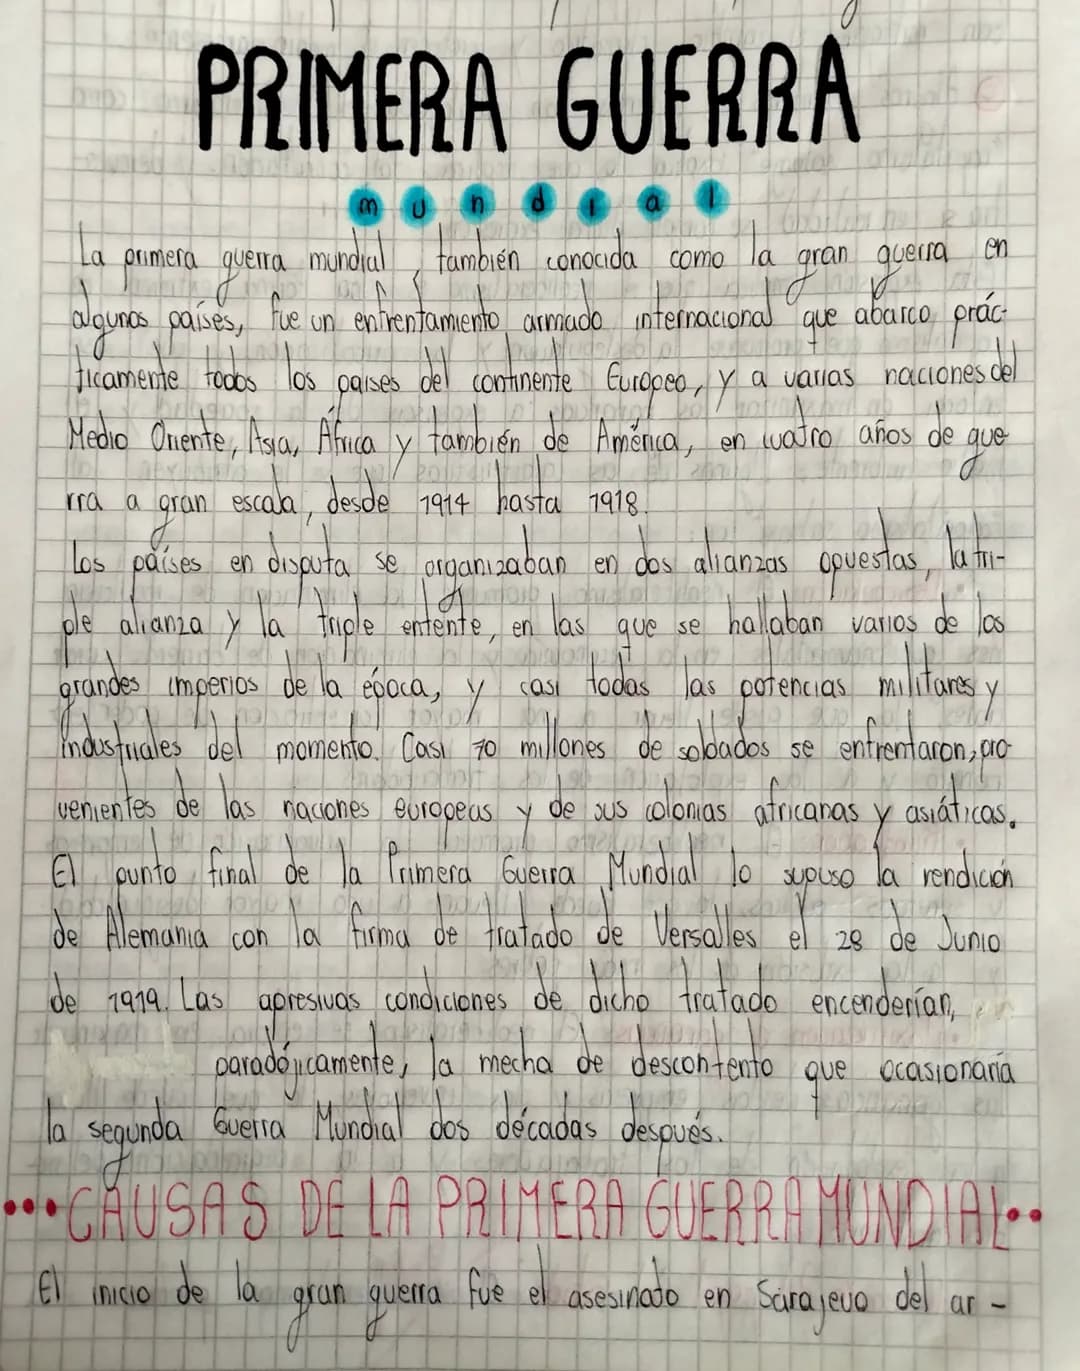 PRIMERA GUERRA
mundial
La primera guerra mundial, también conocida como la gran guerra en
algunos países, fue un enfrentamiento armado internacional que abarco prác-
ticamente todos los países del continente Europeo, y a varias naciones del
Medio Oriente, Asia, África y también de América, en cuatro años de gue
rra a gran escala, desde 1914 hasta 1918.
Los países en disputa se organizaban en dos alianzas opuestas, la tri-
ple alianza y la triple entente, en las que se hallaban varios de los
grandes imperios de la época, y casi todas las potencias militares y
industriales del momento. Casi 70 millones de soldados se enfrentaron, pro-
venientes de las naciones europeas y de sus colonias africanas y asiáticas.
El punto final de la Primera Guerra Mundial lo supuso la rendición
de Alemania con la firma de tratado de Versalles el 28 de Junio
de 1919. Las apresivas condiciones de dicho tratado encenderían,
paradójicamente, la mecha de descontento que ocasionaría
la segunda Guerra Mundial dos décadas después.
CAUSAS DE LA PRIMERA GUERRA MUNDIAL
El inicio de la gran guerra fue el asesinado en Sarajevo del ar-